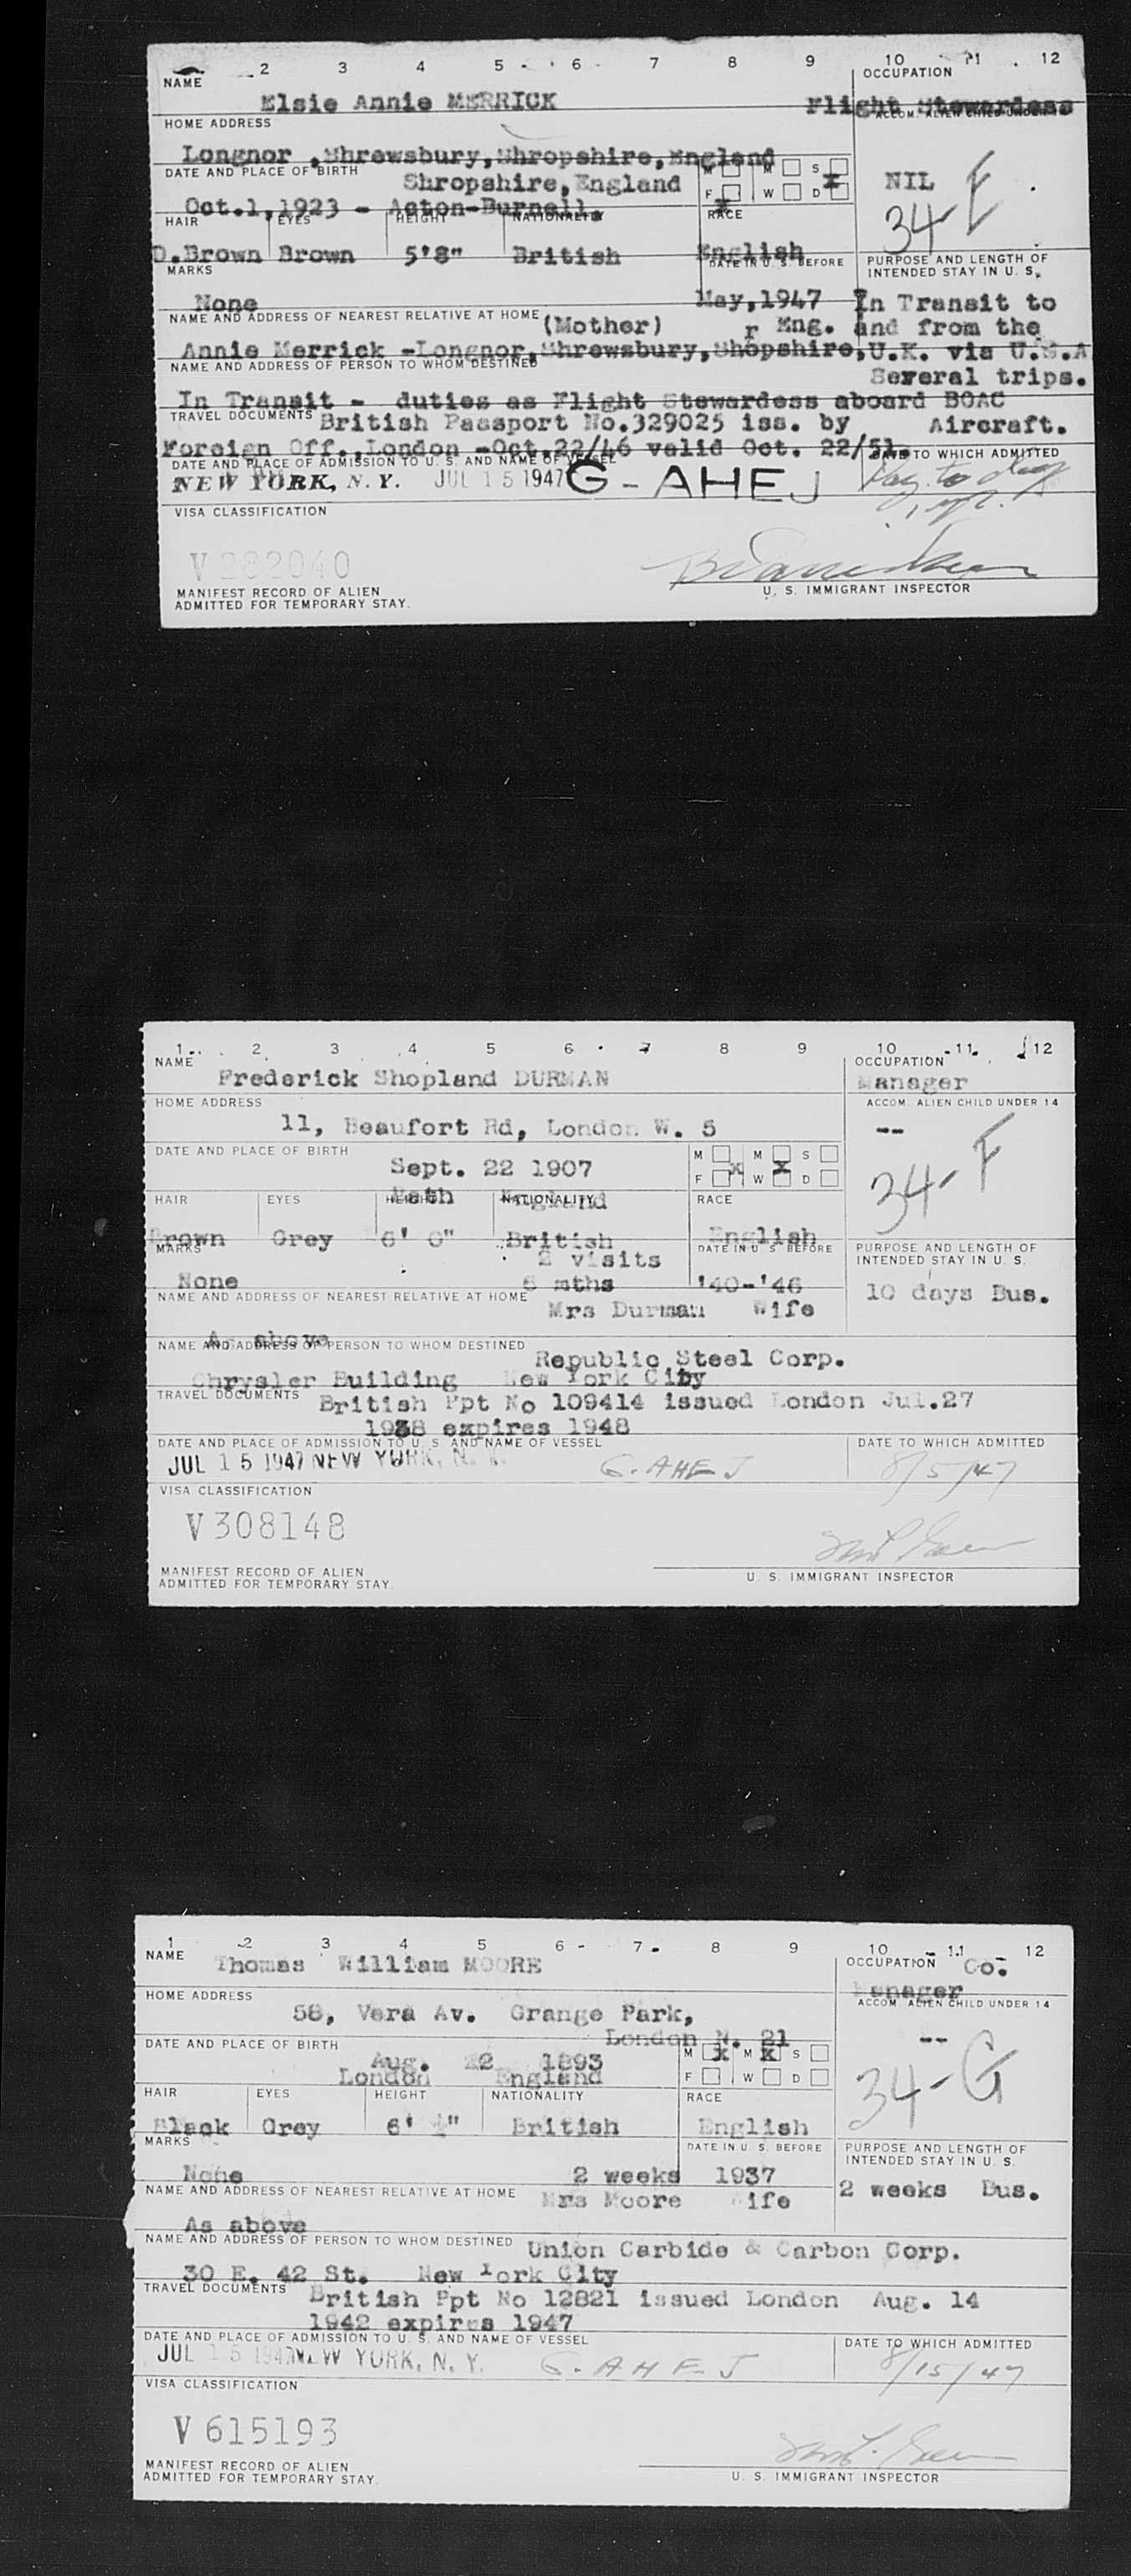 2 3 4 5 6 7 8 9 10 11 12
NAME OCCUPATION
Elsie Annie MERRICK Flight Stewardess
HOME ADDRESS ACCOM. ALIEN CHILD UNDER 14
Longnor , Shrewsbury, Shropshire, England
DATE AND PLACE OF BIRTH Shropshire, England M M S X NIL
Oct.1,1923 - Acton-Burnell. F X W D 34-E
HAIR EYES HEIGHT NATIONALITY RACE
D.Brown Brown 5'8" British English
MARKS DATE IN U. S. BEFORE PURPOSE AND LENGTH OF
INTENDED STAY IN U. S.
None May,1947 In Transit to
NAME AND ADDRESS OF NEAREST RELATIVE AT HOME (Mother) r Eng. and from the
Annie Merrick -Longnor, Shrewsbury, Shopshire, U.K. via U.S.A
NAME AND ADDRESS OF PERSON TO WHOM DESTINED Several trips.
In Transit - duties as Flight Stewardess aboard BOAC
TRAVEL DOCUMENTS British Passport No.329025 iss. by Aircraft.
Foreign Off., London -Oct.22/46 valid Oct. 22/51.
DATE AND PLACE OF ADMISSION TO U. S. AND NAME OF VESSEL DATE TO WHICH ADMITTED
NEW YORK, N. Y. JUL 15 1947 G-AHEJ
VISA CLASSIFICATION
V 282040
MANIFEST RECORD OF ALIEN
ADMITTED FOR TEMPORARY STAY.
U. S. IMMIGRANT INSPECTOR
1 2 3 4 5 6 7 8 9 10 11 12
NAME OCCUPATION
Frederick Shopland DURMAN Manager
HOME ADDRESS ACCOM. ALIEN CHILD UNDER 14
11, Beaufort Rd, London W. 5 --
DATE AND PLACE OF BIRTH M M S
Sept. 22 1907 F X W X D 34-F
Bath England
HAIR EYES HEIGHT NATIONALITY RACE
Brown Grey 6' 0" British English
MARKS 2 visits DATE IN U. S. BEFORE PURPOSE AND LENGTH OF
INTENDED STAY IN U. S.
None 6 mths '40-'46 10 days Bus.
NAME AND ADDRESS OF NEAREST RELATIVE AT HOME Mrs Durman Wife
As above
NAME AND ADDRESS OF PERSON TO WHOM DESTINED Republic Steel Corp.
Chrysler Building New York City
TRAVEL DOCUMENTS British Ppt No 109414 issued London Jul.27
1938 expires 1948
DATE AND PLACE OF ADMISSION TO U. S. AND NAME OF VESSEL DATE TO WHICH ADMITTED
JUL 15 1947 NEW YORK, N. Y. G. AHEJ 8/5/47
VISA CLASSIFICATION
V308148
MANIFEST RECORD OF ALIEN
ADMITTED FOR TEMPORARY STAY.
U. S. IMMIGRANT INSPECTOR
1 2 3 4 5 6 7 8 9 10 11 12
NAME OCCUPATION Co.
Thomas William MOORE Manager
HOME ADDRESS ACCOM ALIEN CHILD UNDER 14
58, Vera Av. Grange Park,
London N. 21 --
DATE AND PLACE OF BIRTH M X M X S
Aug. 22 1893 F W D 34-G
London England
HAIR EYES HEIGHT NATIONALITY RACE
Black Grey 6' ½" British English
MARKS DATE IN U. S. BEFORE PURPOSE AND LENGTH OF
INTENDED STAY IN U. S.
None 2 weeks 1937 2 weeks Bus.
NAME AND ADDRESS OF NEAREST RELATIVE AT HOME Mrs Moore Wife
As above
NAME AND ADDRESS OF PERSON TO WHOM DESTINED Union Carbide & Carbon Corp.
30 E. 42 St. New York City
TRAVEL DOCUMENTS British Ppt No 12821 issued London Aug. 14
1942 expires 1947
DATE AND PLACE OF ADMISSION TO U. S. AND NAME OF VESSEL DATE TO WHICH ADMITTED
JUL 15 1947 NEW YORK, N. Y. G. AHEJ 8/15/47
VISA CLASSIFICATION
V 615193
MANIFEST RECORD OF ALIEN
ADMITTED FOR TEMPORARY STAY.
U. S. IMMIGRANT INSPECTOR